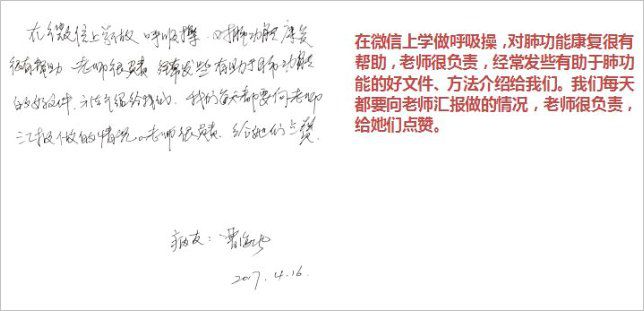 在微信上学做呼吸操，对肺功能康复
很有帮助，老师很负责，经常发些有助于肺功能
的好文件、方法介绍给我们。我们每天都要向老师
汇报做的情况。老师很负责，给她们点赞。
病友：曹
2017.4.16.
在微信上学做呼吸操，对肺功能康复很有
帮助，老师很负责，经常发些有助于肺功
能的好文件、方法介绍给我们。我们每天
都要向老师汇报做的情况，老师很负责，
给她们点赞。